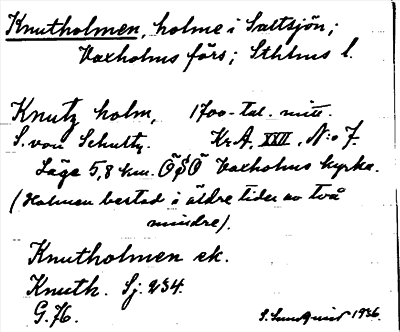 Knutholmen, holme i Saltsjön;
Vaxholms förs; Sthlms l.
Knutz holm, 1700-tal. mitt.
S. von Schultz. Kr.A. XXII, N:o 7.
Läge 5,8 km. ÖSÖ Vaxholms kyrka.
(Holmen bestod i äldre tider av två
mindre).
Knutholmen ek.
Knuth. Sj. 234.
G. 76. S. Sundquist 1936.